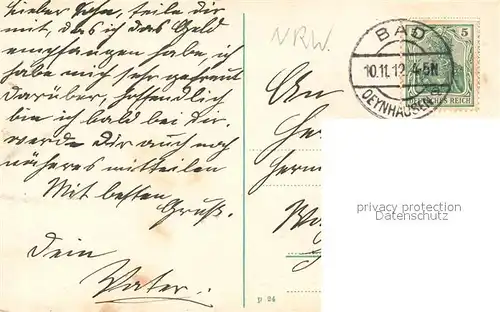 Lieber Sohn, teile dir
mit, das ich das Geld
empfangen habe, ich
habe mich sehr gefreut
darüber, hoffendlich
bin ich bald bei Dir.
werde Dir auch noch
näheres mitteilen
Mit besten
Gruß.
Dein
Vater.
NRW.
BAD
10.11.12. 4-5N
OEYNHAUSEN
5
DEUTSCHES REICH
An
Her
Herm
p 24
privacy protection
Datenschutz